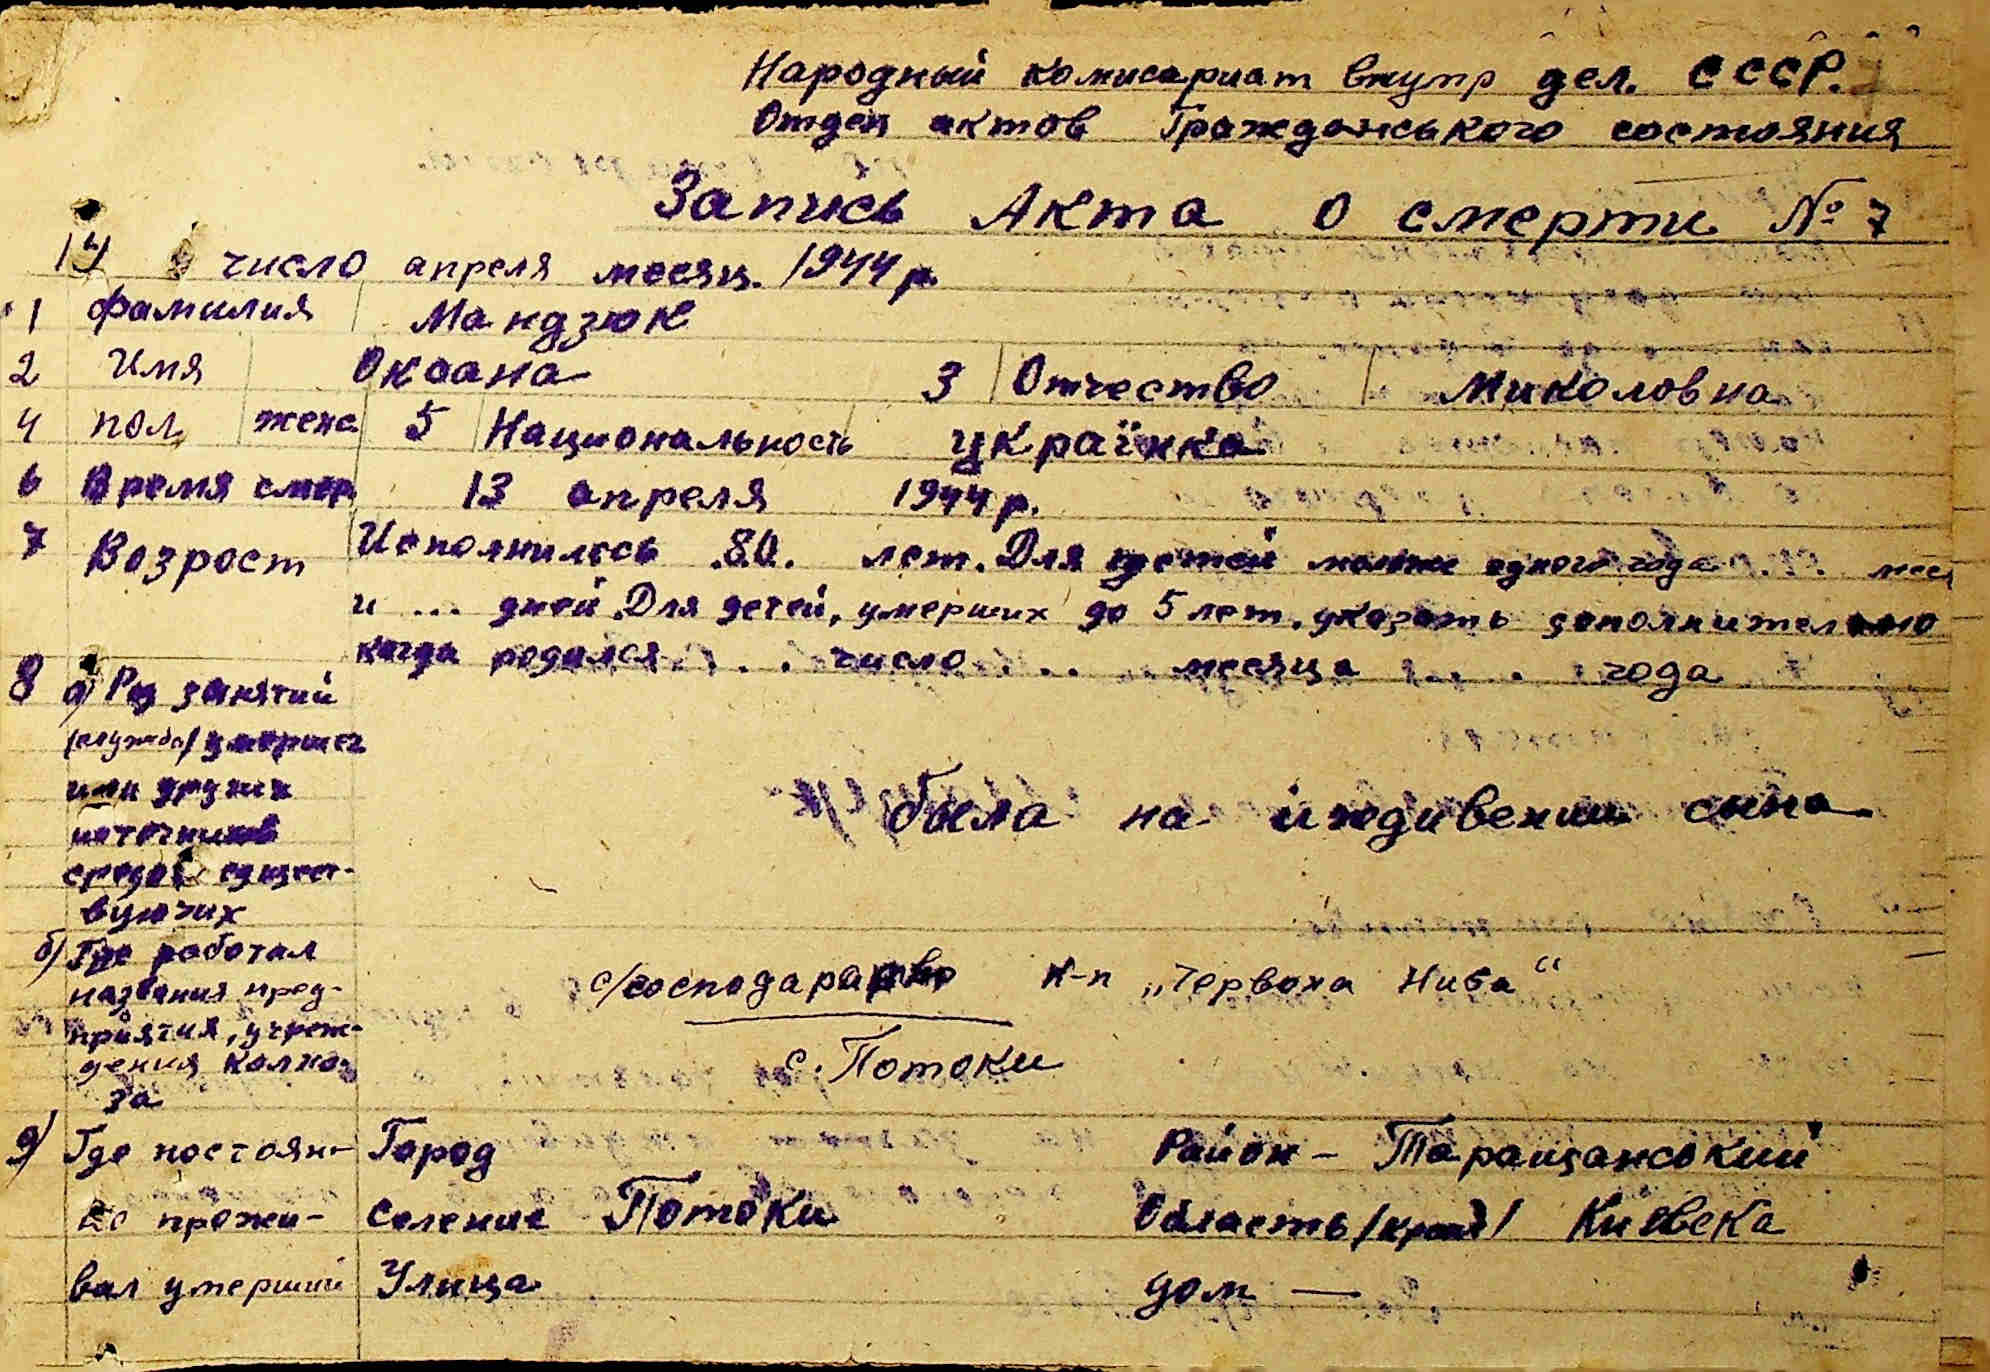 Народный комисариат внутр дел. СССР.
Отдел актов Гражданського состояния
Запись Акта о смерти № 7
14 число апреля месяц. 1944 р.
1 фамилия Мандзюк
2 Имя Оксана 3 Отчество Миколовна
4 пол женс 5 Национальность українка
6 Время смер. 13 апреля 1944 р.
7 Возрост Исполнилось .80. лет. Для детей моложе одного года ... мес
и ... дней. Для детей, умерших до 5 лет, указать дополнительно
когда родился ... число ... месяца ... года
8 а) Род занятий
/служба/ умершег
или других
источников
средов сущест-
вующих
была на иждивении сына
б) Где работал
названия пред-
приятия, учреж-
дения колхо-
за
с/господарство к-п „Червона Нива“
с. Потоки
9) Где постоян- Город Район - Таращанський
но прожи- Селение Потоки Область /край/ Киевска
вал умерший Улица дом —